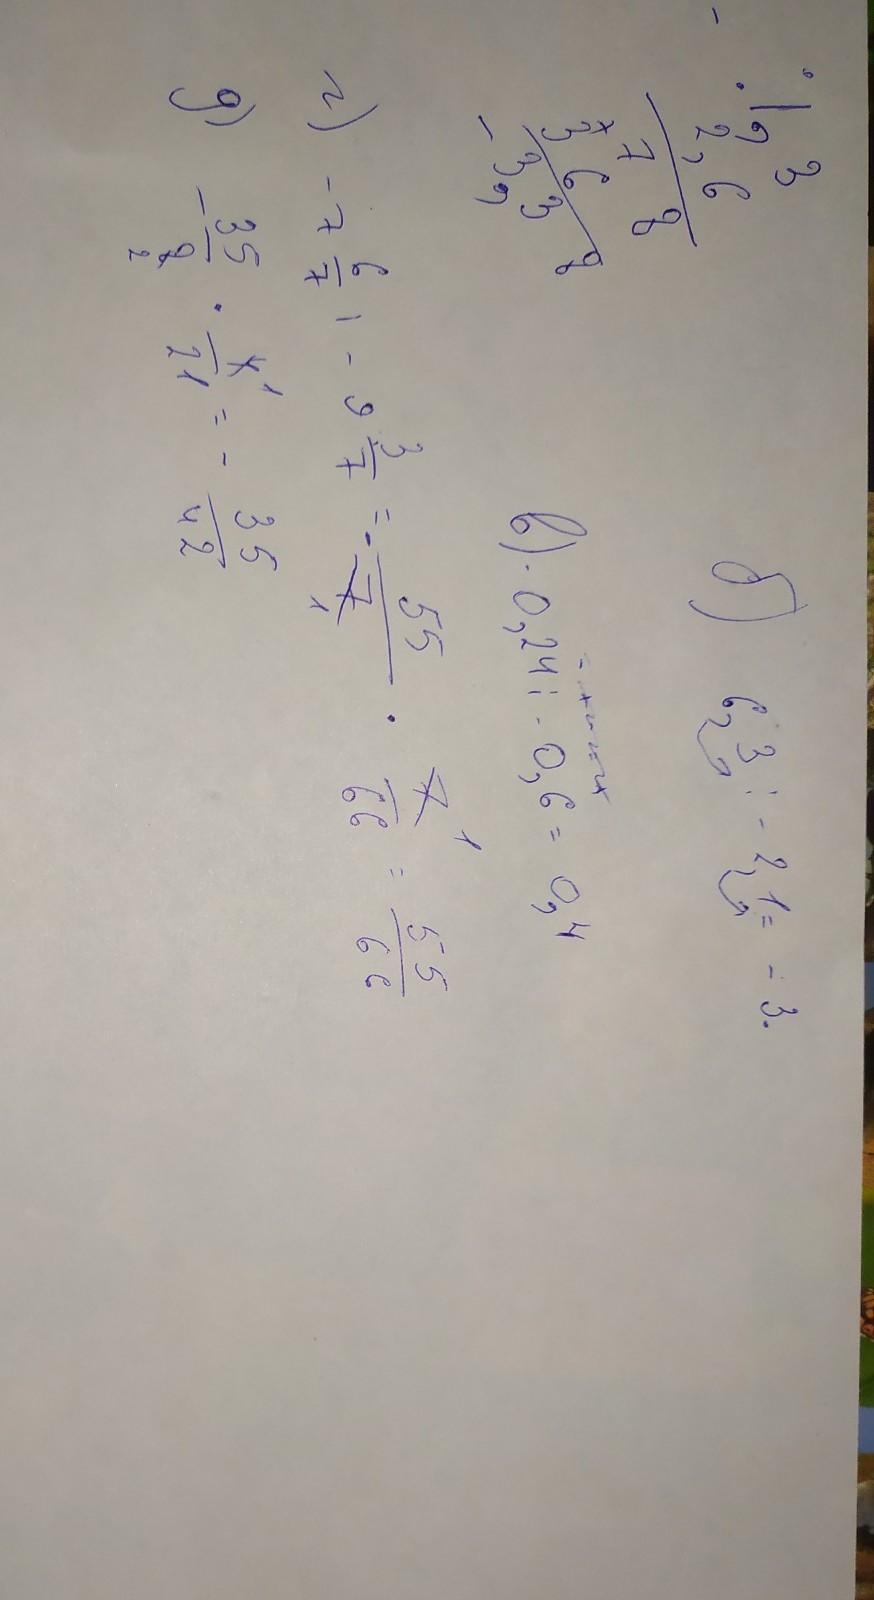 1,3
2,6
7 8
+
3 6
- 3,3 8
б) 6,3 : - 2,1 = - 3.
в) - 0,24 : - 0,6 = 0,4
г) - 7 6/7 : - 9 3/7 = - 55/7 1 · 7 1/66 = 55/66
д) - 35/8 2 · 4 1/21 = - 35/42